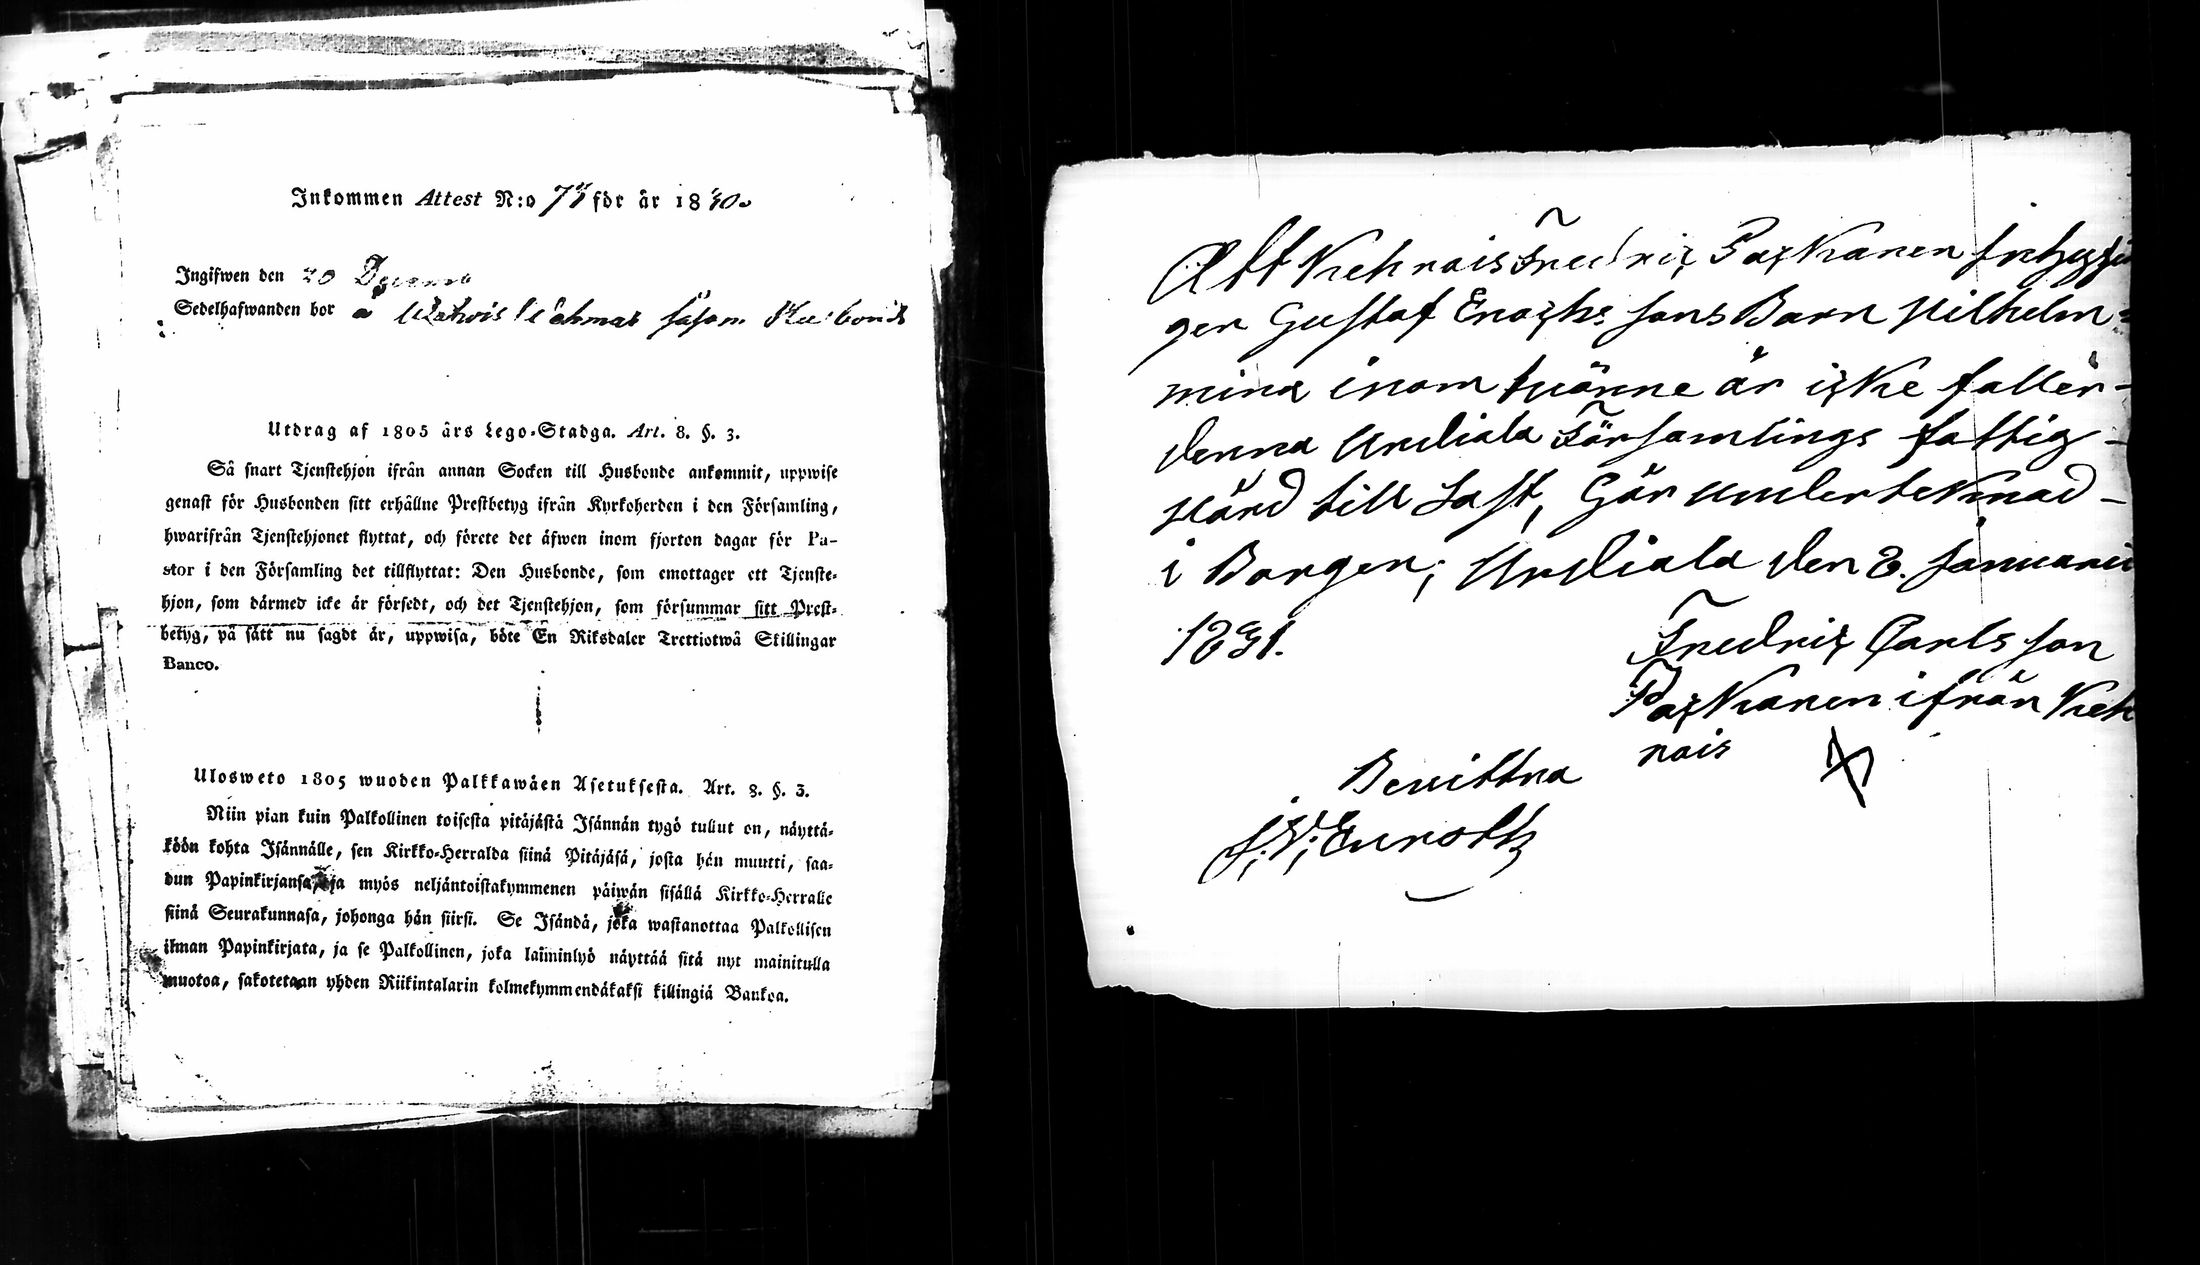 Inkommen Attest N:o 77 för år 1830.
Ingifwen den 20 Decemb
Sedelhafwanden bor å såsom Husbonde
Utdrag af 1805 års Lego-Stadga. Art. 8. §. 3.
Så snart Tjenstehjon ifrån annan Socken till Husbonde ankommit, uppwise
genast för Husbonden sitt erhållne Prestbetyg ifrån Kyrkoherden i den Församling,
hwarifrån Tjenstehjonet flyttat, och förete det äfwen inom fjorton dagar för Pa-
stor i den Församling det tillflyttat: Den Husbonde, som emottager ett Tjenste-
hjon, som dårmed icke år försedt, och det Tjenstehjon, som försummar sitt Prest-
betyg, på sått nu sagdt år, uppwisa, böte En Riksdaler Trettiotwå Skillingar
Banco.
Ulosweto 1805 wuoden Palkkawåen Asetuksesta. Art. 8. §. 3.
Niin pian kuin Palkollinen toisesta pitåjåstå Isånnån tygö tullut on, nåyttå-
köön kohta Isånnålle, sen Kirkko-Herralda siinå Pitåjåså, josta hån muutti, saa-
dun Papinkirjansa, ja myös neljåntoistakymmenen påiwån sisållå Kirkko-Herralle
siinå Seurakunnasa, johonga hån siirsi. Se Isåndå, joka wastanottaa Palkollisen
ilman Papinkirjata, ja se Palkollinen, joka laiminlyö nåyttåå sitå nyt mainitulla
muotoa, sakotetaan yhden Riikintalarin kolmekymmendåkaksi killingiå Bankoa.
Att Kehrois Fredric Packanen Inhyssin
ger Gustaf Enochs sons Barn Wilhelm=
mina inom tränne år icke faller
denna Urdiala Församlings fattig-
vård till Last, Går undertecknad-
i Borgen; Urdiala den 8. Januarii
1831.
Fredric Carlsson
Packanen ifrån Keh
rois
Bevittna